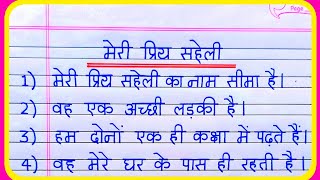 Page
मेरी प्रिय सहेली
1) मेरी प्रिय सहेली का नाम सीमा है।
2) वह एक अच्छी लड़की है।
3) हम दोनों एक ही कक्षा में पढ़ते हैं।
4) वह मेरे घर के पास ही रहती है।